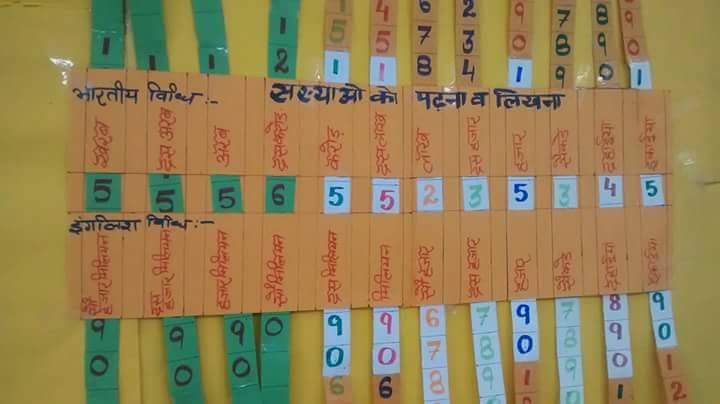 4 6 2 9 7 8 9
1 5 5 7 3 0 8 9 0
1 1 1 2 1 1 8 4 1 9 0 1
भारतीय विधि :- सख्याओ को पढ़ना व लिखना
खरब दस अरब अरब दस करोड़ करोड़ दस लाख लाख दस हजार हजार सैकड़े दहाईया इकाईया
5 5 5 6 5 5 2 3 5 3 4 5
इंगलिश विधि :-
सौ हजार मिलियन दस हजार मिलियन हजार मिलियन सौ मिलियन दस मिलियन मिलियन सौ हजार दस हजार हजार सैकड़े दहाईया इकाईया
9 9 9 0 9 9 6 7 9 7 8 9
0 0 0 0 0 7 8 0 8 9 0
6 6 8 9 1 9 0 1
1 2